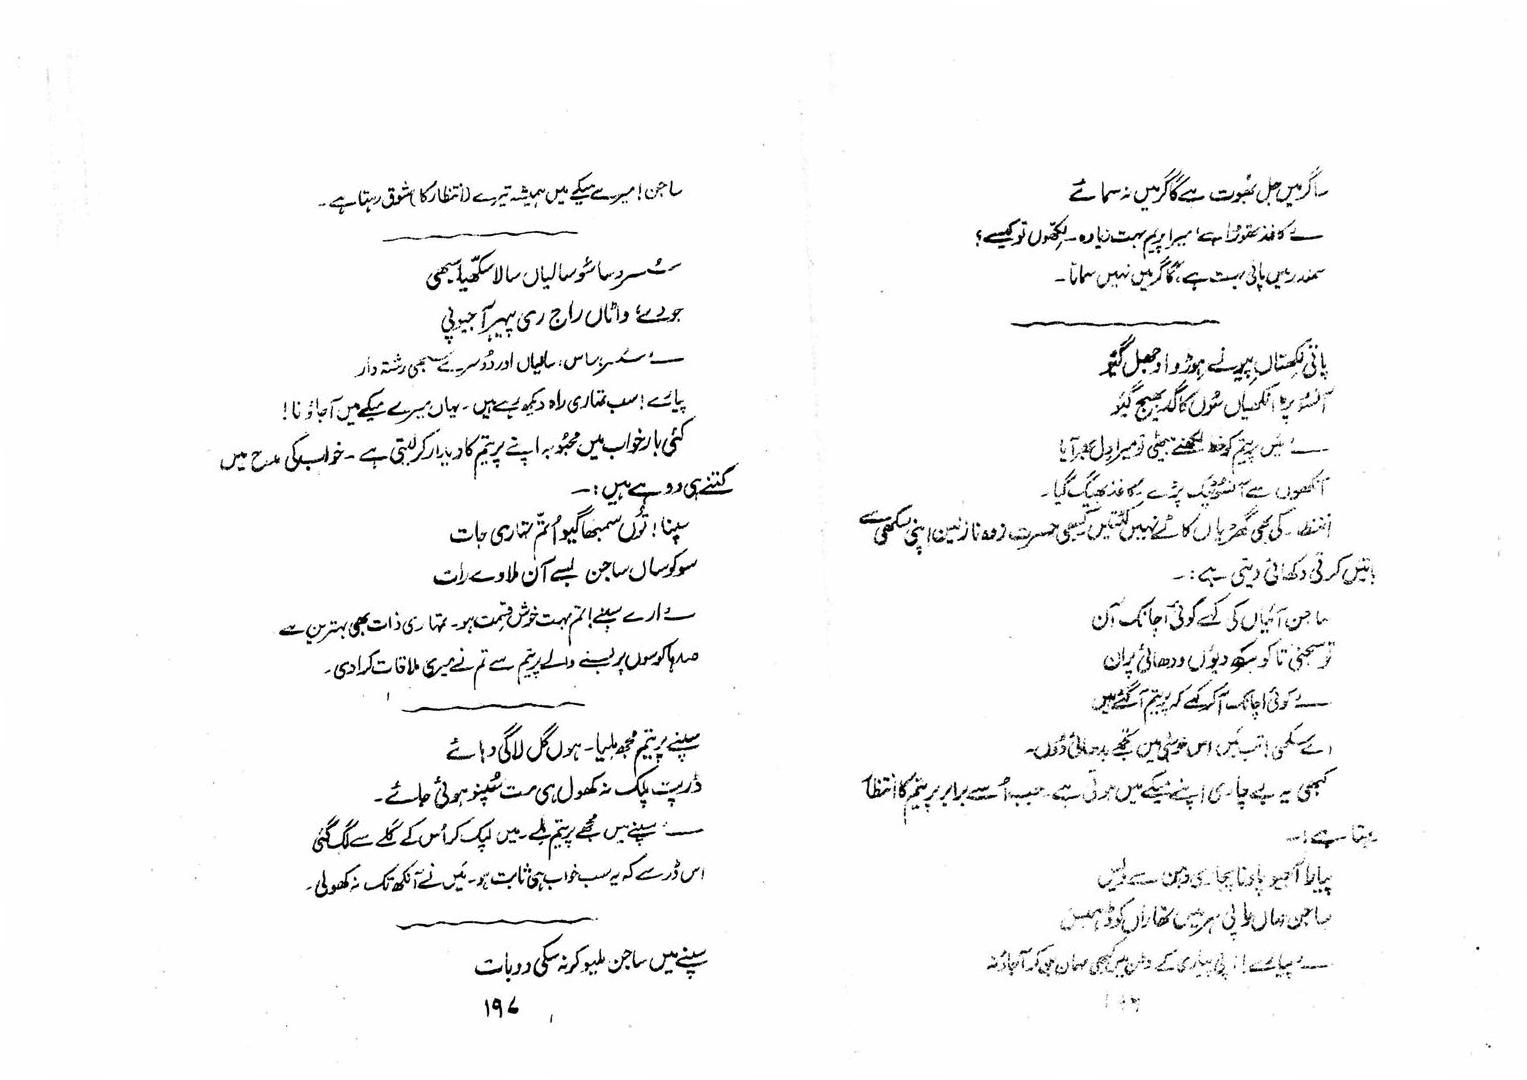 ساگر میں جل بھوت ہے گاگر میں نہ سمائے
ــــ کاغذ تھوڑا ہے، میرا پریم بہت زیادہ ۔ لکھوں تو کیسے؟
سمندر میں پانی بہت ہے، گاگر میں نہیں سماتا ۔
پاتی لکھتاں پیو نے ہوڑو اوجھل گیو
آنسو پڑ انکھیاں سُوں کاگد بھیج گیو
ــــ میں پیتم کو خط لکھنے بیٹھی تو میرا دل بھر آیا
آنکھوں سے آنسو ٹپک پڑے کاغذ بھیگ گیا ۔
کی بھی گھڑیاں کاٹے نہیں کٹتیں کبھی حسرت زدہ نازنین اپنی سکھی سے
باتیں کرتی دکھائی دیتی ہے :۔
ساجن آئیاں کی کہے کوئی اچانک آن
تو سجنی تا کو دیوں ودھائی پران
ــــ کوئی اچانک آکر کہے کہ پریتم آگئے ہیں
اے سکھی! تب میں اس خوشی میں تجھے بدھائی دوں۔
کبھی یہ بے چاری اپنے میکے میں ہوتی ہے۔ جب اُسے برابر پریتم کا انتظار
رہتا ہے :۔
پیارا آجیو پاونا
ساجن
ــــ پیارے! پیاری کے وطن میں کبھی مہمان بن کر آجاؤ نہ
ساجن! میرے میکے میں ہمیشہ تیرے (انتظار کا) شوق رہتا ہے ۔
سُسرد ساسُو سالیاں سالا سکھیا سبھی
جووے واٹاں راج ری پیہر آجیو پی
ــــ سُسر، ساس، سالیاں اور دُوسرے سبھی رشتہ دار
پیارے! سب تمہاری راہ دیکھ رہے ہیں ۔ یہاں میرے میکے میں آجاؤ نا!
کئی بار خواب میں محبوبہ اپنے پریتم کا دیدار کر لیتی ہے ۔ خواب کی مدح میں
کتنے ہی دوہے ہیں :۔
سپنا! تُوں سمبھاگیو اُتم تہاری جات
سو کوساں ساجن بسے آن ملاوے رات
ــــ ارے سپنے! تم بہت خوش قسمت ہو۔ تمہاری ذات بھی بہترین ہے
صدہا کوسوں پر بسنے والے پریتم سے تم نے میری ملاقات کرا دی ۔
سپنے پریتم مجھ ملیا ۔ ہوں گل لاگی دھائے
ڈرپت پلک نہ کھول ہی مت سُپنو ہوئی جائے ۔
ــــ سپنے میں مجھے پریتم ملے ۔ میں لپک کر اُس کے گلے سے لگ گئی
اس ڈر سے کہ یہ سب خواب ہی ثابت ہو ۔ میں نے آنکھ تک نہ کھولی ۔
سپنے میں ساجن ملیو کر نہ سکی دو بات
۱۹۷